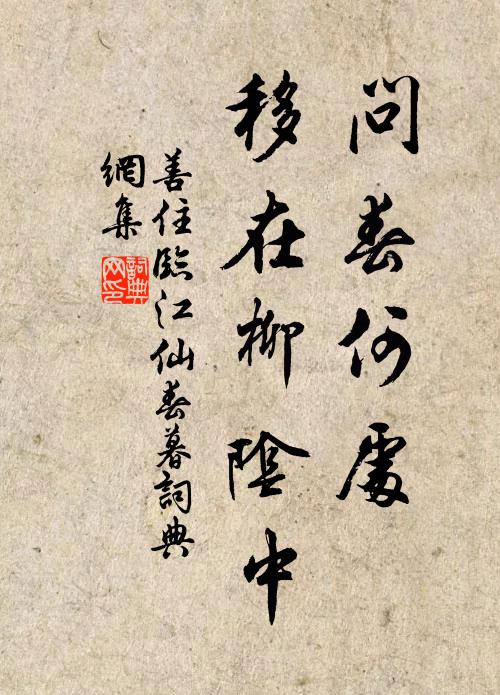 問春何處
移在柳陰中
善住臨江仙春暮詞典
網集
詞典
网印